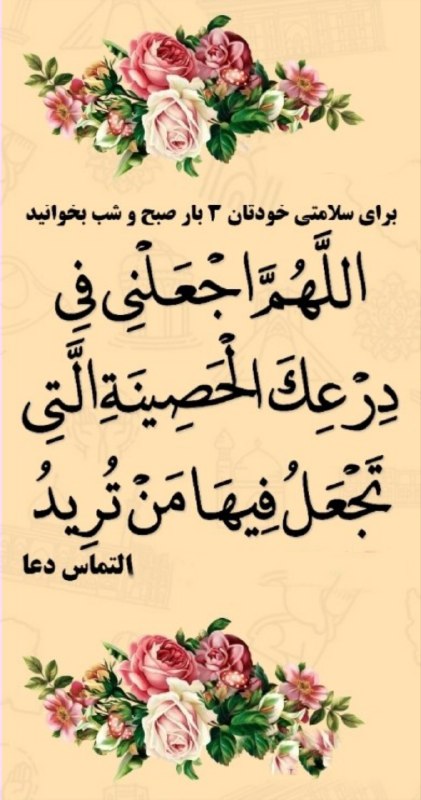 برای سلامتی خودتان ۳ بار صبح و شب بخوانید
اللَّهُمَّ اجْعَلْنِی فِی
دِرْعِكَ الْحَصِینَةِ الَّتِی
تَجْعَلُ فِیهَا مَنْ تُرِیدُ
التماس دعا